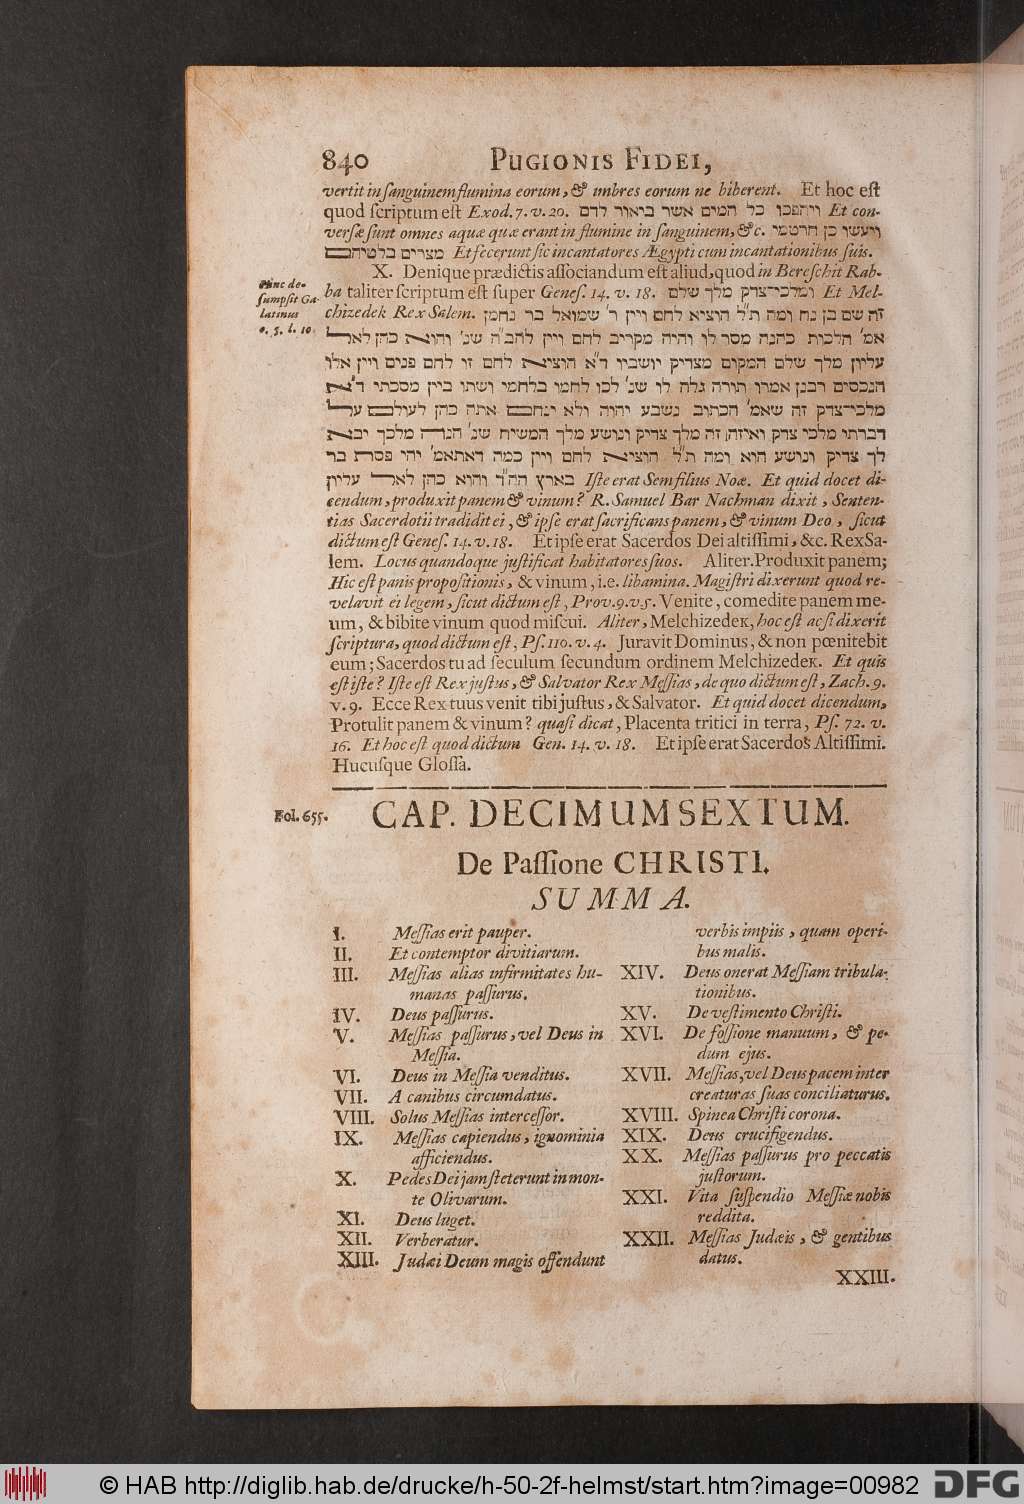 840 PUGIONIS FIDEI,
vertit in sanguinem flumina eorum, & imbres eorum ne biberent. Et hoc est
quod scriptum est Exod. 7. v. 20. ויהפכו כל המים אשר ביאור לדם Et con-
versæ sunt omnes aquæ quæ erant in flumine in sanguinem, &c. ויעשו כן חרטמי
מצרים בלטיהם Et fecerunt sic incantatores Ægypti cum incantationibus suis.
X. Denique prædictis associandum est aliud, quod in Bereschit Rab-
Hinc de-
sumpsit Ga-
latinus
ba taliter scriptum est super Genes. 14. v. 18. ומלכי־צדק מלך שלם Et Mel-
chizedek Rex Salem. זה שם בן נח ומה ת״ל הוציא לחם ויין ר׳ שמואל בר נחמן
אמ׳ הלכות כהנה מסר לו והיה מקריב לחם ויין להב״ה שנ׳ והוא כהן לאל
עליון מלך שלם המקום מצדיק יושביו ד״א הוציא לחם זו לחם פנים ויין אלו
הנכסים רבנן אמרו תורה גלה לו שנ׳ לכו לחמו בלחמי ושתו ביין מסכתי ד״א
מלכי־צדק זה שאמ׳ הכתוב נשבע יהוה ולא ינחם אתה כהן לעולם על
דברתי מלכי צדק ואיזה, זה מלך צדיק ונושע מלך המשיח שנ׳ הנה מלכך יבא
לך צדיק ונושע הוא ומה ת״ל הוציא לחם ויין כמה דאתאמ׳ יהי פסת בר
בארץ הה״ד והוא כהן לאל עליון Iste erat Sem filius Noæ. Et quid docet di-
cendum, produxit panem & vinum? R. Samuel Bar Nachman dixit, Senten-
tias Sacerdotii tradidit ei, & ipse erat sacrificans panem, & vinum Deo, sicut
dictum est Genes. 14. v. 18. Et ipse erat Sacerdos Dei altissimi, &c. Rex Sa-
lem. Locus quandoque justificat habitatores suos. Aliter. Produxit panem;
Hic est panis propositionis, & vinum, i.e. libamina. Magistri dixerunt quod re-
velavit ei legem, sicut dictum est, Prov. 9. v. 5. Venite, comedite panem me-
um, & bibite vinum quod miscui. Aliter, Melchizedek, hoc est ac si dixerit
scriptura, quod dictum est, Ps. 110. v. 4. Juravit Dominus, & non pœnitebit
eum; Sacerdos tu ad seculum secundum ordinem Melchizedek. Et quis
est iste? Iste est Rex justus, & Salvator Rex Messias, de quo dictum est, Zach. 9.
v. 9. Ecce Rex tuus venit tibi justus, & Salvator. Et quid docet dicendum,
Protulit panem & vinum? quasi dicat, Placenta tritici in terra, Ps. 72. v.
16. Et hoc est quod dictum Gen. 14. v. 18. Et ipse erat Sacerdos Altissimi.
Hucusque Glossa.
Fol. 655. CAP. DECIMUM SEXTUM.
De Passione CHRISTI.
SUMMA.
I. Messias erit pauper.
II. Et contemptor divitiarum.
III. Messias alias infirmitates hu-
manas passurus.
IV. Deus passurus.
V. Messias passurus, vel Deus in
Messia.
VI. Deus in Messia venditus.
VII. A canibus circumdatus.
VIII. Solus Messias intercessor.
IX. Messias capiendus, ignominia
afficiendus.
X. Pedes Dei jam steterunt in mon-
te Olivarum.
XI. Deus luget.
XII. Verberatur.
XIII. Judæi Deum magis offendunt
verbis impiis, quam operi-
bus malis.
XIV. Deus onerat Messiam tribula-
tionibus.
XV. De vestimento Christi.
XVI. De fossione manuum, & pe-
dum ejus.
XVII. Messias, vel Deus pacem inter
creaturas suas conciliaturus.
XVIII. Spinea Christi corona.
XIX. Deus crucifigendus.
XX. Messias passurus pro peccatis
justorum.
XXI. Vita suspendio Messiæ nobis
reddita.
XXII. Messias Judæis, & gentibus
datus.
XXIII.
© HAB http://diglib.hab.de/drucke/h-50-2f-helmst/start.htm?image=00982 DFG